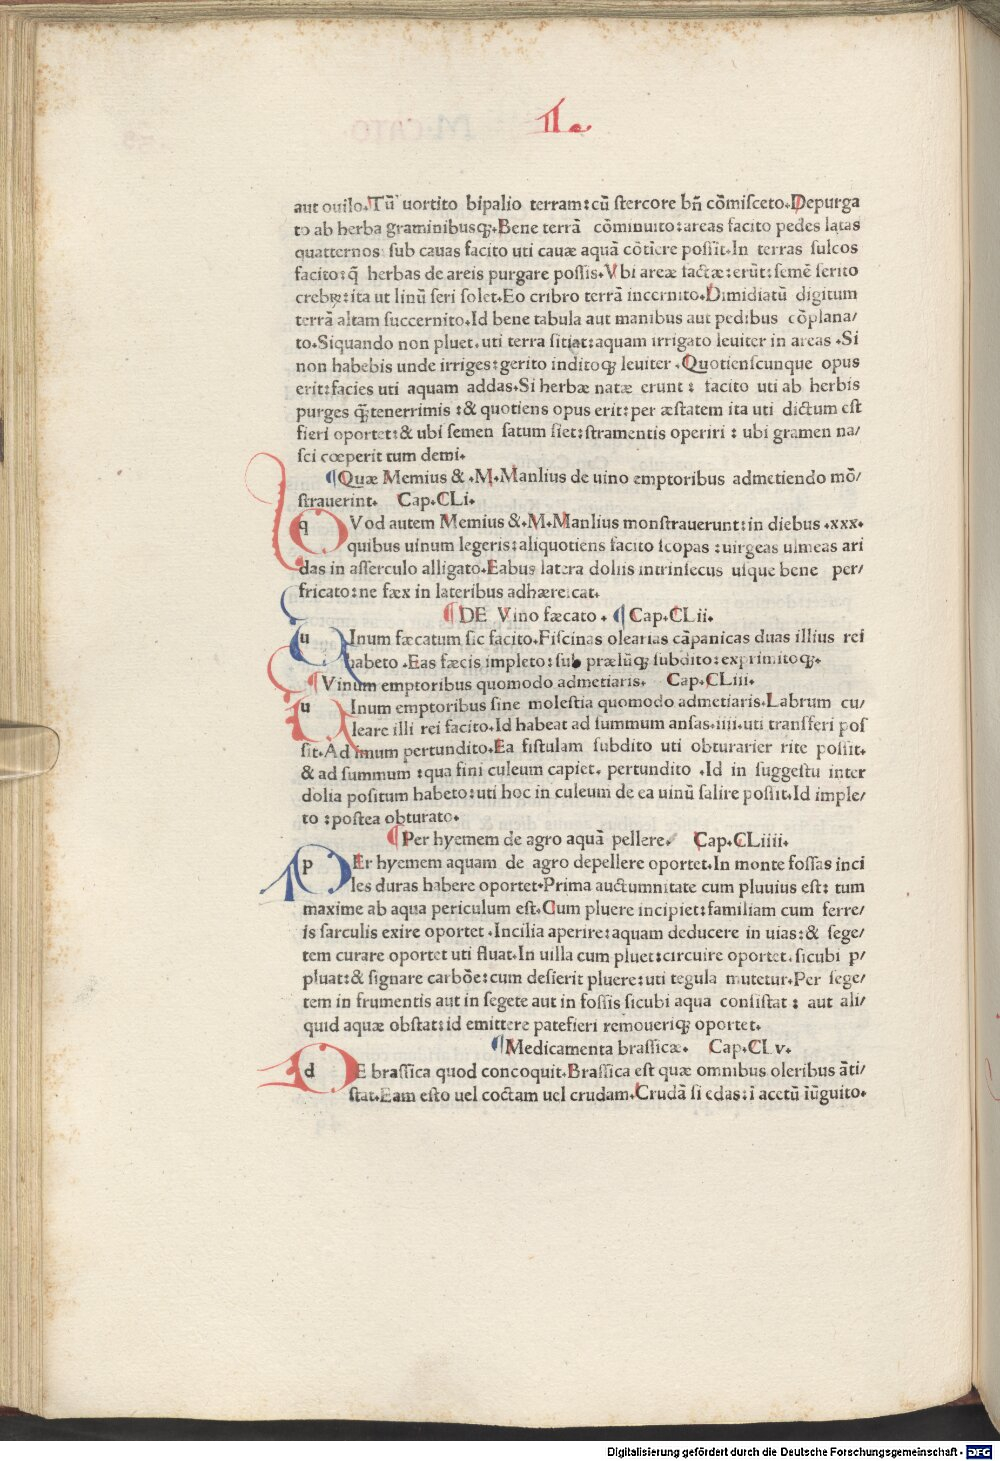 II.
aut ouilo.Tū uortito bipalio terram:cū ſtercore bn̄ cōmiſceto.Depurga
to ab herba graminibusq;.Bene terrā cōminuito:areas facito pedes latas
quatternos ſub cauas facito uti cauæ aquā cōtīere poſſīt.In terras ſulcos
facito:q̄ herbas de areis purgare poſſis.Vbi areæ factæ:erūt:ſemē ſerito
crebꝝ:ita ut linū ſeri ſolet.Eo cribro terrā incernito.Dimidiatū digitum
terrā altam ſuccernito.Id bene tabula aut manibus aut pedibus cōplana/
to.Siquando non pluet.uti terra ſitiat:aquam irrigato leuiter in areas .Si
non habebis unde irriges:gerito inditoq; leuiter .Quotienſcunque opus
erit:facies uti aquam addas.Si herbæ natæ erunt : facito uti ab herbis
purges q̄;tenerrimis :& quotiens opus erit:per æſtatem ita uti dictum eſt
fieri oportet:& ubi ſemen ſatum ſiet:ſtramentis operiri : ubi gramen na/
ſci cœperit tum demi.
¶Quæ Memius & .M.Manlius de uino emptoribus admetiendo mō/
ſtrauerint. Cap.CLi.
q Vod autem Memius &.M.Manlius monſtrauerunt:in diebus .xxx.
quibus uinum legeris:aliquotiens facito ſcopas :uirgeas ulmeas ari
das in aſſerculo alligato.Eabus latera doliis intrinſecus uſque bene per/
fricato:ne fæx in lateribus adhæreſcat.
¶DE Vino fæcato . ¶ Cap.CLii.
u Inum fæcatum ſic facito.Fiſcinas olearias cāpanicas duas illius rei
habeto .Eas fæcis impleto:ſub prælūq; ſubdito:exprimitoq;.
¶Vinum emptoribus quomodo admetiaris. Cap.CLiii.
u Inum emptoribus ſine moleſtia quomodo admetiaris.Labrum cu/
leare illi rei facito.Id habeat ad ſummum anſas.iiii.uti tranſferi poſ
ſit.Ad imum pertundito.Ea fiſtulam ſubdito uti obturarier rite poſſit.
& ad ſummum :qua fini culeum capiet. pertundito .Id in ſuggeſtu inter
dolia poſitum habeto:uti hoc in culeum de ea uinū ſalire poſſit.Id imple/
to :poſtea obturato.
¶Per hyemem de agro aquā pellere. Cap.CLiiii.
p Er hyemem aquam de agro depellere oportet.In monte foſſas inci
les duras habere oportet.Prima auctumnitate cum pluuius eſt: tum
maxime ab aqua periculum eſt.Cum pluere incipiet:familiam cum ferre/
is ſarculis exire oportet .Incilia aperire:aquam deducere in uias:& ſege/
tem curare oportet uti fluat.In uilla cum pluet:circuire oportet.ſicubi p/
pluat:& ſignare carbōe:cum deſierit pluere:uti tegula mutetur.Per ſege/
tem in frumentis aut in ſegete aut in foſſis ſicubi aqua conſiſtat : aut ali/
quid aquæ obſtat:id emittere patefieri remoueriq; oportet.
¶Medicamenta braſſicæ. Cap.CLv.
d E braſſica quod concoquit.Braſſica eſt quæ omnibus oleribus āti/
ſtat.Eam eſto uel coctam uel crudam.Crudā ſi edas:ī acetū īūguito.
Digitalisierung gefördert durch die Deutsche Forschungsgemeinschaft - DFG